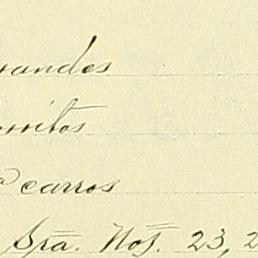 randes
rritos
carros
Sra. Nos. 23, 2